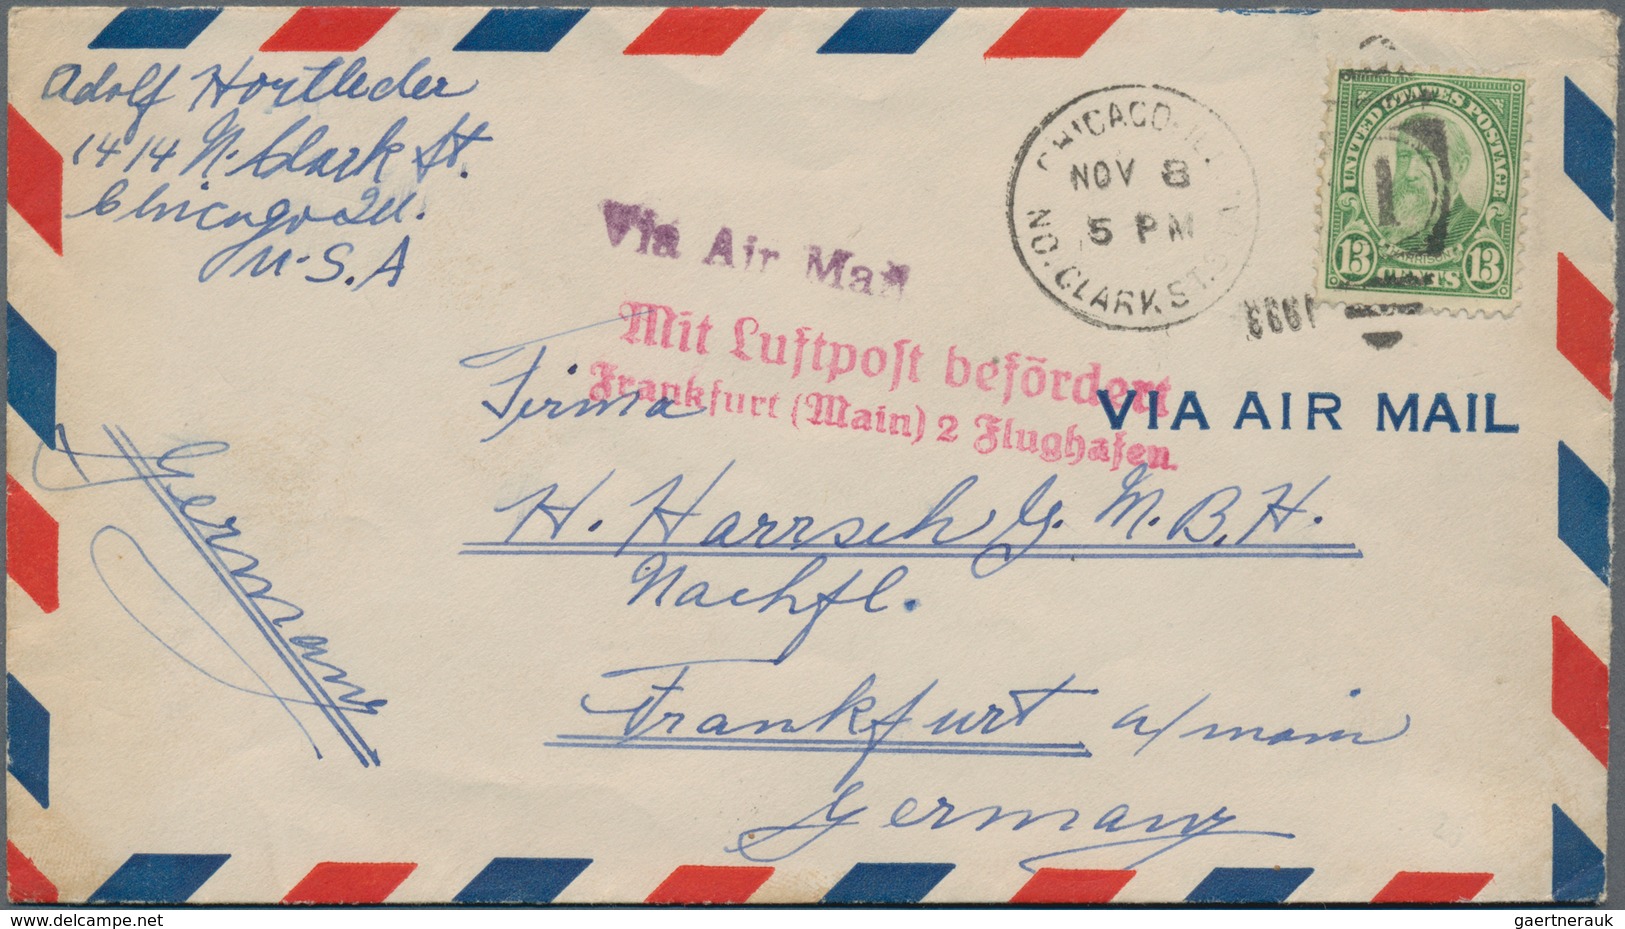 Adolf Hortleder
1414 N. Clark St.
Chicago Ill.
U.S.A
CHICAGO, ILL.
NOV 8
5 PM
NO. CLARK ST.
UNITED STATES POSTAGE
HARRISON
13 CENTS 13
Via Air Mail
Mit Luftpost befördert
Frankfurt (Main) 2 Flughafen.
VIA AIR MAIL
Firma
H. Harrsch G.M.B.H.
Nachfl.
Frankfurt a/main
Germany
Germany
delcampe.net
gaertnerauk